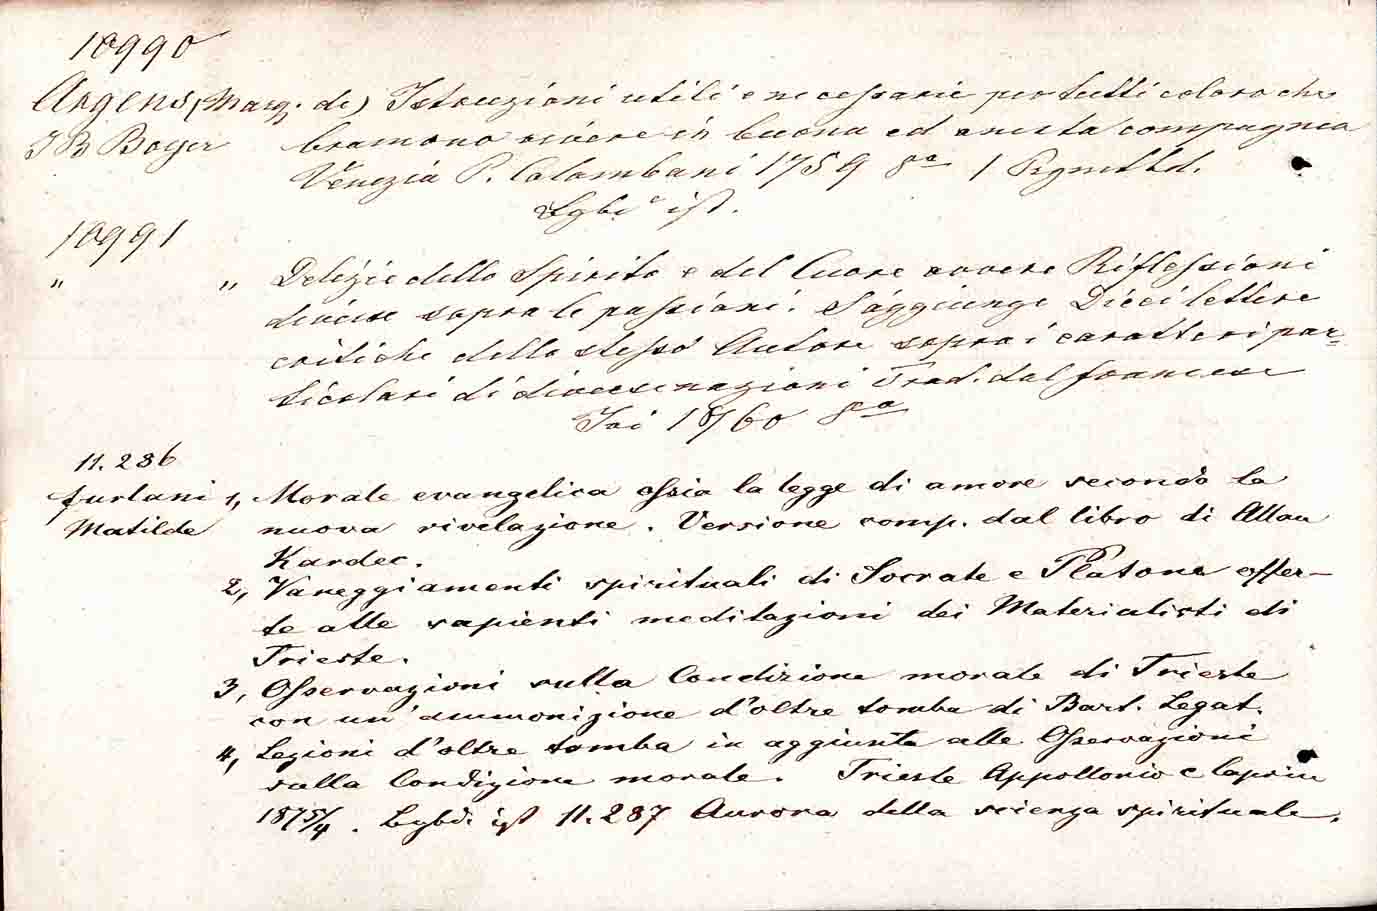 10990
Argens, (Marq. de) Istruzioni utili e necessarie per tutti coloro che
J B Boyer bramano vivere in buona ed onesta compagnia
Venezia P. Colombani 1759 8º 1 Pgmtbd.
ist.
10991
" " Delizie dello Spirito e del Cuore ovvero Riflessioni
diverse sopra le passioni. S'aggiunge Dieci lettere
critiche dello stesso Autore sopra i caratteri par=
ticolari di diverse nazioni Trad. dal francese
Ivi 1760 8º
11.286
Furlani 1, Morale evangelica ossia la legge di amore secondo la
Matilde nuova rivelazione. Versione comp. dal libro di Allan
Kardec.
2, Vaneggiamenti spirituali di Socrate e Platone offer-
te alle sapienti meditazioni dei Materialisti di
Trieste.
3, Osservazioni sulla Condizione morale di Trieste
con un' ammonizione d'oltre tomba di Bart. Legat.
4, Lezioni d'oltre tomba in aggiunta alle Osservazioni
sulla Condizione morale. Trieste Appollonio e Caprin
1875/4. ist 11.287 Aurora della scienza spirituale.